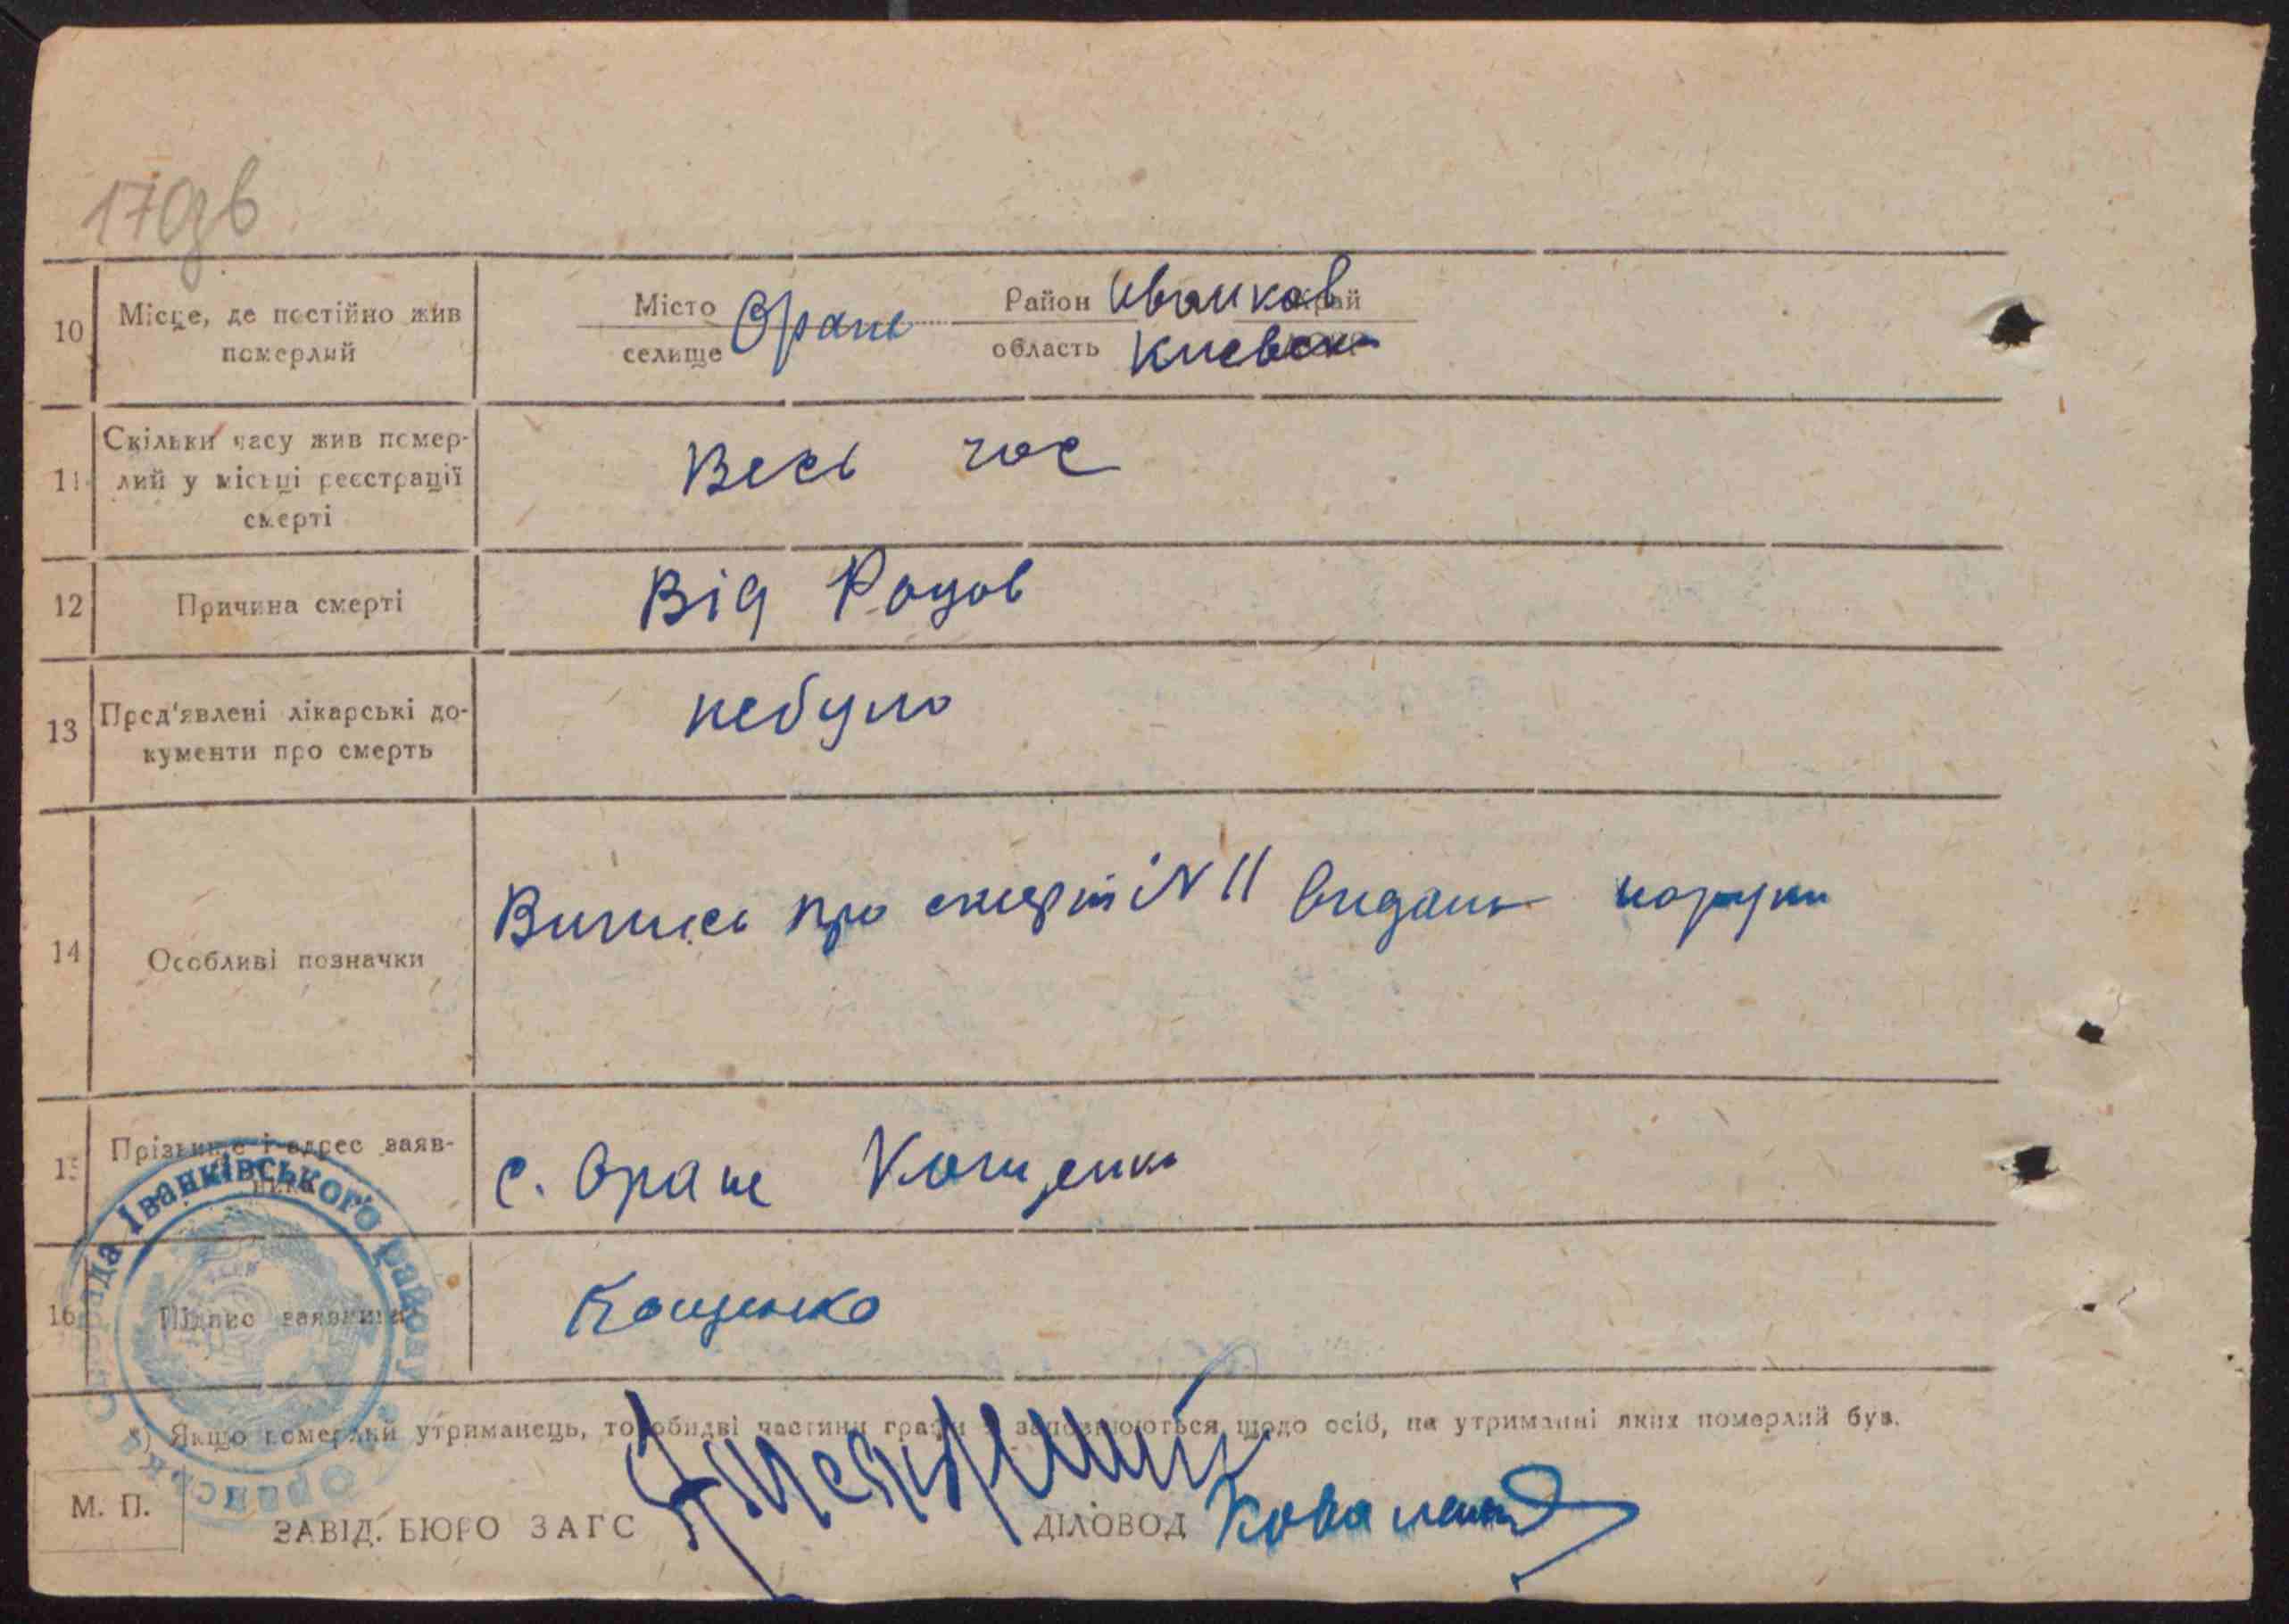 17зв
10 Місце, де постійно жив померлий
Місто селище Оране Район Иванков край область Киевск
11 Скільки часу жив помер-
лий у місьці реєстрації
смерті
Весь час
12 Причина смерті Від Родов
13 Пред'явлені лікарські до-
кументи про смерть
небуло
14 Особливі позначки
Выпись про смерть N 11 видана на руки
15 Прізвище і адрес заяв-
ника
с. Оране Кощенко
16 Підпис заявника Кощенко
Сільрада Іванківського району
Оранська
*) Якщо померлий утриманець, то обидві частини графи заповнюються щодо осіб, на утриманні яких померлий був.
М. П.
ЗАВІД. БЮРО ЗАГС
ДІЛОВОД Коваленко